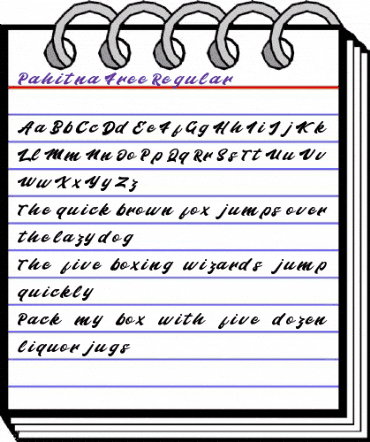 Pahitna Free Regular
Aa Bb Cc Dd Ee Ff Gg Hh Ii Jj Kk
Ll Mm Nn Oo Pp Qq Rr Ss Tt Uu Vv
Ww Xx Yy Zz
The quick brown fox jumps over
the lazy dog
The five boxing wizards jump
quickly
Pack my box with five dozen
liquor jugs